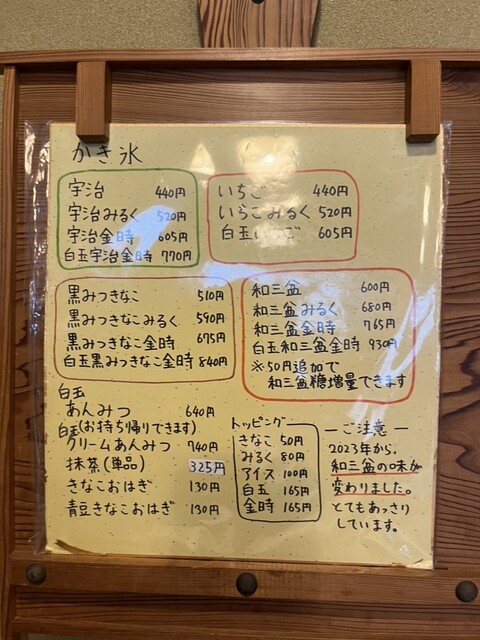 かき氷
宇治 440円
宇治みるく 520円
宇治金時 605円
白玉宇治金時 770円
いちご 440円
いちごみるく 520円
白玉いちご 605円
黒みつきなこ 510円
黒みつきなこみるく 590円
黒みつきなこ金時 675円
白玉黒みつきなこ金時 840円
和三盆 600円
和三盆みるく 680円
和三盆金時 765円
白玉和三盆金時 930円
※50円追加で
和三盆糖増量できます
白玉
あんみつ 640円
(お持ち帰りできます)
白玉
クリームあんみつ 740円
抹茶(単品) 325円
きなこおはぎ 130円
青豆きなこおはぎ 130円
トッピング
きなこ 50円
みるく 80円
アイス 100円
白玉 165円
金時 165円
ーご注意ー
2023年から、
和三盆の味が
変わりました。
とてもあっさり
しています。